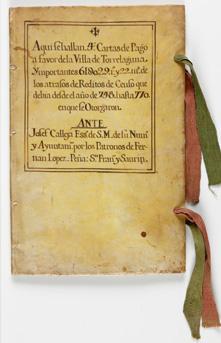 Aqui se hallan 4. Cartas de Pago
a favor de la Villa de Torrelaguna.
Ymportantes y 22 ms. de
los atrasos de Reditos de Censo que
debia desde el año de 748. hasta 770.
en que se Otorgaron.
ANTE
Josef Callega Essno. de S. M. de su Num.
y Ayuntam. por los Patronos de Fer
nan Lopez. Peña: Sn. Franco. y